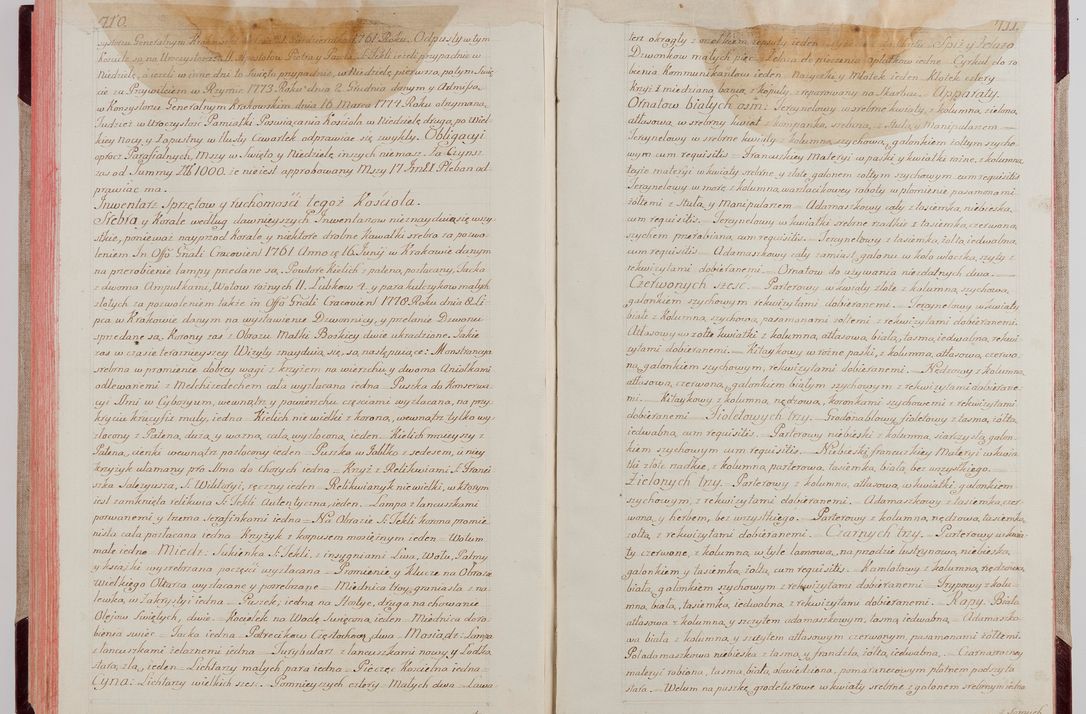 710.
systorzu Generalnym Krakowskim dnia 21 Października 1761 Roku. Odpusty w tym
Kościele są na Uroczystość SS. Apostołow Piotra y Pawła, S. Tekli ieżeli przypadnie w
Niedzielę, a ieżeli w inne dni to Święto przypadnie, w Niedzielę pierwszą po tym Świę
cie za Przywileiem w Rzymie 1773. Roku dnia 2. Grudnia danym y Admissą
w Konsystorzu Generalnym Krakowskim dnia 16 Marca 1774. Roku otrzymaną,
Tudzież w Uroczystość Pamiątki Poswiącania Kościoła w Niedzielę drugą po Wiel
kiey Nocy, y Zapustny w tłusty Czwartek odprawiac się zwykły. Obligacyi
oprocz Parafialnych, Mszy w Święta y Niedziele inszych niemasz. Za Czynsz
zas od Summy 1000. że nie iest approbowany Mszy 17 Pleban od
prawiac ma.
Inwentarz Sprzętow y ruchomości tegoż Kościoła.
Srebra y Korale według dawnieyszych Inwentarzow nieznayduią się wszy
stkie, ponieważ nayprzod Korale y niektore drobne Kawałki srebra za pozwo
leniem In Offo Gnali Cracovien 1761 Anno die 16 Junij w Krakowie danym
na przerobienie lampy przedane są. Powtore Kielich z pateną, pozłacany, Tacka
z dwoma Ampułkami, Wotow roznych 11. Łubkow 4. y para kulczykow małych
złotych za pozwoleniem także in Offo Gnali Cracovien 1778. Roku dnia 8. Li
pca w Krakowie danym na wystawienie Dzwonnicy, y przelanie Dzwonu
sprzedane są. Korony zas z Obrazu Matki Boskiey dwie ukradzione. Jakie
zas w czasie teraznieyszey Wizyty znayduią się, są następuiące: Monstrancya
srebrna w promienie dobrey wagi z krzyżem na wierzchu y dwoma Aniołkami
odlewanemi z Melchizedechem cała wyzłacana iedna. Puszka do Konserwa
cyi Smi w Cyboryum, wewnątrz y powierzchu częsciami wyzłacana, na przy
kryciu krucyfix mały, iedna. Kielich nie wielki z koroną, wewnątrz tylko wy
złocony z Pateną, dużą y ważną, całą wyzłoconą, ieden. Kielich mnieyszy z
Pateną, cienki wewnątrz pozłocony ieden. Puszka w Jabłko z sedesem, u niey
krzyżyk ułamany pro Smo do Chorych iedna. Krzyż z Relikwiami S. Franci
szka Salezyusza, S. Wiktoryi, ręczny ieden. Relikwiarzyk niewielki, w ktorym
iest zamknięta relikwia S. Tekli Autentyczna, ieden. Lampa z łancuszkami
porwanemi y trzema Serafinkami iedna. Na Obrazie S. Tekli korona promie
nista cała pozłacana iedna. Krzyżyk z korpusem mosiężnym ieden. Wotum
małe iedno. Miedz: Sukienka S. Tekli, z insygniami Lwa, Wołu, Palmy
y książki wysrebrzana poczęści wyzłacana. Promienie y Klucze na Obrazie
wielkiego Ołtarza wyzłacane y posrebrzane. Miednica trzy, graniasta z na
lewką, w Zakrystyi iedna. Puszek, iedna na Hostye, druga na chowanie
Oleiow Swiętych, dwie. Kociołek na Wodę Swięconą ieden. Miednica do ro
bienia swiec. Tacka iedna. Patrecikow Częstochow. dwa. Mosiądz: Lampa
z łancuszkami żelaznemi iedna. Turybularz z łancuszkami nowy, y Łodzka
stara, zła, ieden. Lichtarzy małych para iedna. Pieczęc Koscielna iedna.
Cyna: Lichtarzy wielkich szesc. Pomnieyszych cztery. Małych dwa. Lawa
711.
terz okrągły z Spiz y Żelazo
Dzwonkow małych pięc. Żelaza do pieczenia Opłatkow iedne. Cyrkuł do ro
bienia Kommunikantow ieden. Nożyczki y Młotek ieden. Kłotek cztery
Kryi 1 miedziana bania z kopuły zreparowany na Skarbcu. Apparaty.
Ornatow białych osm: Terzynelowy w srebrne kwiaty, z kolumną zieloną,
atłasową, w srebrny kwiat z kampanką, srebrną, z Stułą y Manipularzem.
Terzynelowy w srebrne kwiaty z kolumną szychową, galonkiem żołtym szycho
wym cum requisitis. Francuskiey Materyi w paski y kwiatki różne, z kolumną
teyże materyi w kwiaty srebrne y złote, galonem żołtym szychowym, cum requisitis
Terzynelowy w morę z kolumną warzlachowey roboty w płomienie pasamonami
żołtemi z Stułą y Manipularzem. Adamaszkowy cały z tasiemką, niebieską,
cum requisitis. Terzynelowy w kwiatki srebrne rzadkie z tasiemką, czerwoną,
szychem przerabianą, cum requisitis. Terzynelowy z tasiemką, żołtą iedwabną,
cum requisitis. Adamaszkowy cały zamiast galonu w koło włoczką, szyty z
rekwizytami dobieranemi. Ornatow do używania niezdatnych dwa.
Czerwonych szesc. Parterowy w kwiaty złote z kolumną, szychową,
galonkiem szychowym rekwizytami dobieranemi. Terzynelowy w kwiaty
białe z Kolumną, szychową, pasamanami żołtemi z rekwizytami dobieranemi.
Atłasowy w żołte kwiatki z kolumną, atłasową, białą, tasmą iedwabną, rekwi
zytami dobieranemi. Kitaykowy w rożne paski, z kolumną, atłasową, czerwo
ną, galonkiem szychowym, rekwizytami dobieranemi. Nędzowy z kolumną
atłasową, czerwoną, galonkiem białym szychowym z rekwizytami dobierane
mi. Kitaykowy z kolumną, nędzową, koronkami szychowemi z rekwizytami
dobieranemi. Fioletowych trzy. Grodonablowy, fioletowy z tasmą, żołtą
iedwabną, cum requisitis. Parterowy niebieski z kolumną, siarczystą, galon
kiem szychowym cum requisitis. Niebieski francuskiey Materyi w kwia
tki złote rzadkie, z kolumną, parterową, tasiemką, białą, bez wszystkiego.
Zielonych trzy. Parterowy z kolumną, atłasową, w kwiatki, galonkiem
szychowym, z rekwizytami dobieranemi. Adamaszkowy z tasiemką, czer
woną, y herbem, bez wszystkiego. Parterowy z kolumną, nędzową, tasiemką,
żołtą, z rekwizytami dobieranemi. Czarnych trzy. Parterowy w kwia
ty czerwone, z kolumną, w tyle lamową, na przodzie wstęznową, niebieską,
galonkiem y tasiemką, żołtą, cum requisitis. Kamlotowy z kolumną, nędzową
białą, galonkiem szychowym z rekwizytami dobieranemi. Trypowy z kolu
mną, białą, tasiemką, iedwabną, z rekwizytami dobieranemi. Kapy. Biała
atłasowa z kolumną, y szczytem adamaszkowym, tasmą, iedwabną. Adamaszko
wa biała z kolumną, y szczytem atłasowym czerwonym, pasamonami żołtemi.
Poładomaszkowa niebieska z tasmą, y frandzlą, żołtą, iedwabną. Czarna rożney
materyi robiona, tasmą, białą, obwiedziona, pomaranczowym płotnem podszyta
stara. Welum na puszkę grodeturowe w kwiaty srebrne z galonem srebrnym iedno